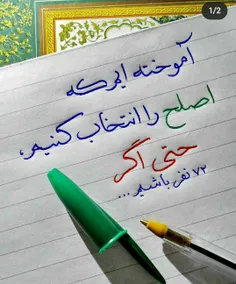 1/2
آموخته ایم که
اصلح را انتخاب کنیم،
حتی اگر
۷۲ نفر باشیم...